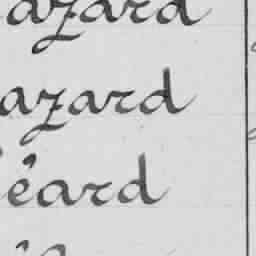 azard
azard
éard